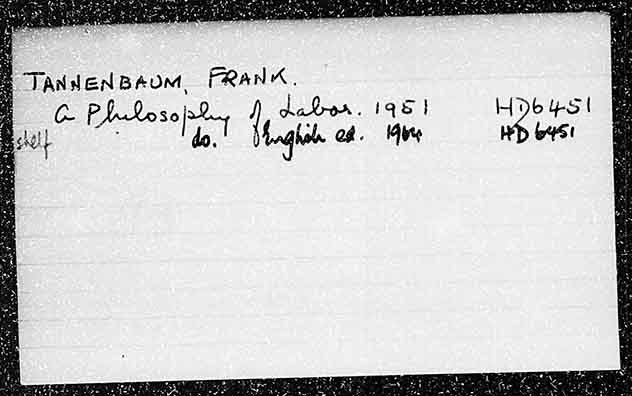 TANNENBAUM, FRANK.
A Philosophy of Labor. 1951 HD6451
shelf do. English ed. 1964 HD6451